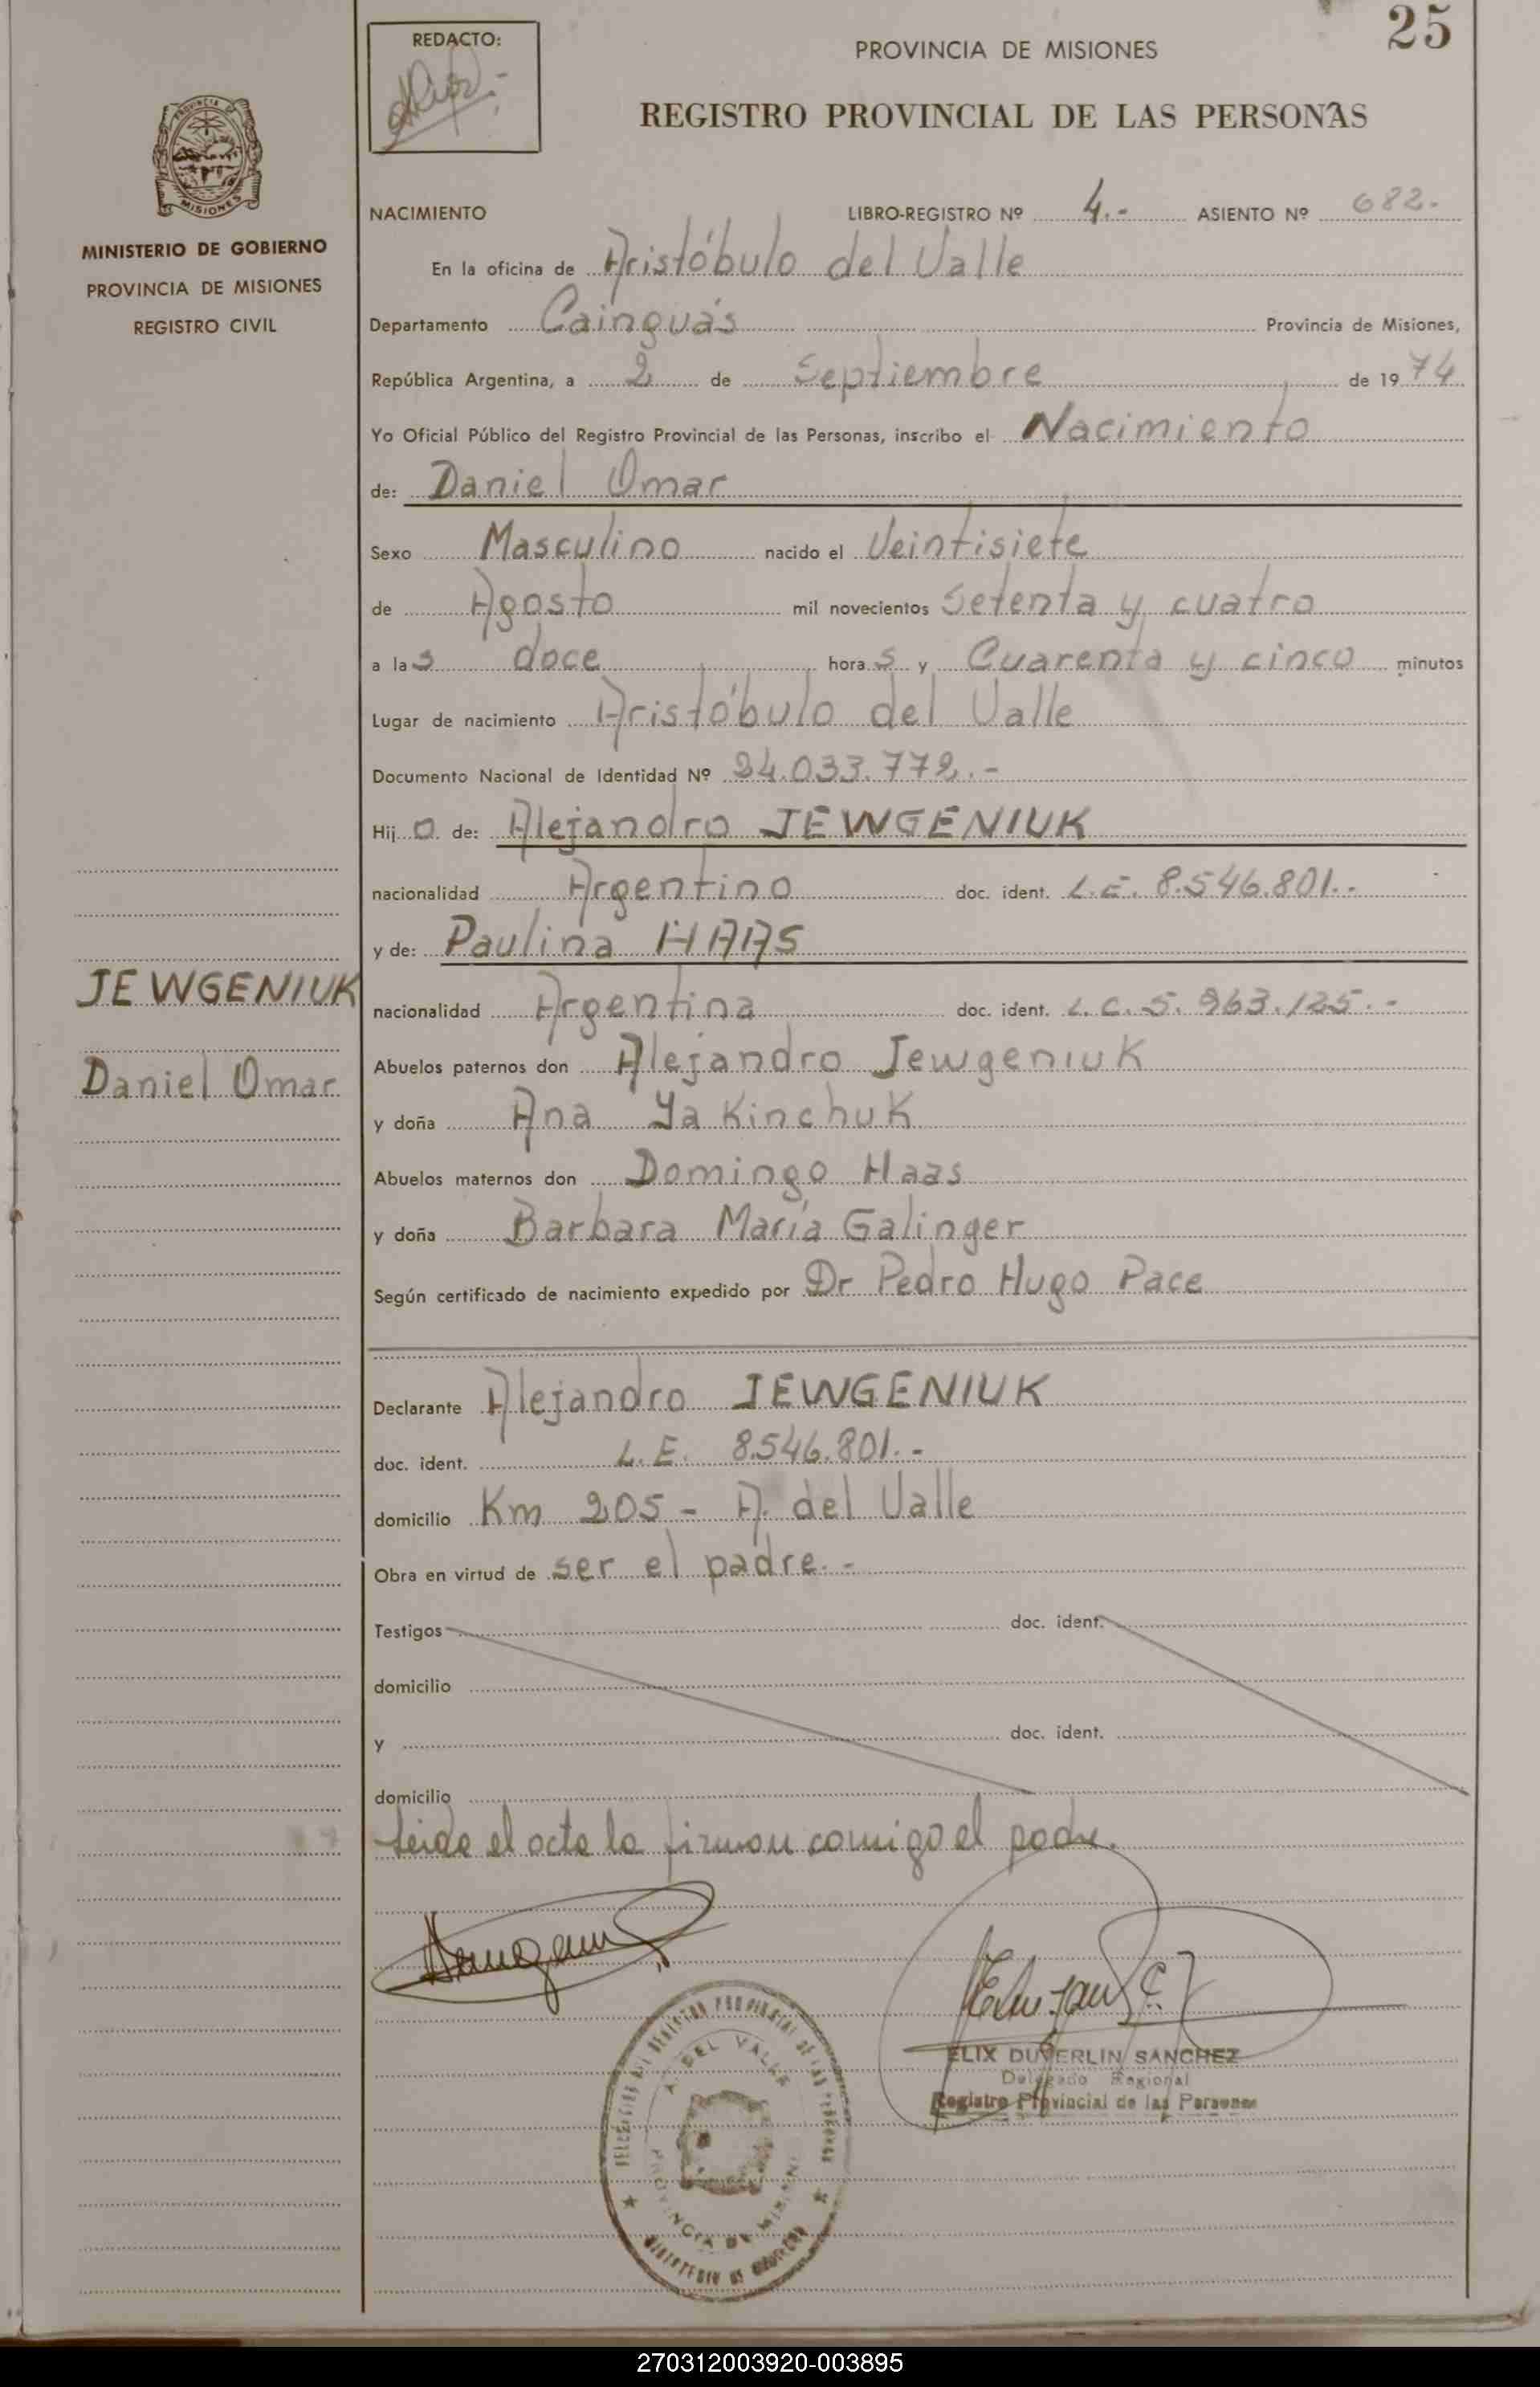 25
REDACTO:
PROVINCIA DE MISIONES
REGISTRO PROVINCIAL DE LAS PERSONAS
PROVINCIA DE
MISIONES
MINISTERIO DE GOBIERNO
PROVINCIA DE MISIONES
REGISTRO CIVIL
NACIMIENTO LIBRO-REGISTRO Nº 4.- ASIENTO Nº 682.-
En la oficina de Aristóbulo del Valle
Departamento Cainguás Provincia de Misiones,
República Argentina, a 2 de Septiembre de 1974
Yo Oficial Público del Registro Provincial de las Personas, inscribo el Nacimiento
de: Daniel Omar
Sexo Masculino nacido el Veintisiete
de Agosto mil novecientos Setenta y cuatro
a las doce horas y Cuarenta y cinco minutos
Lugar de nacimiento Aristóbulo del Valle
Documento Nacional de Identidad Nº 24.033.772.-
Hijo de: Alejandro JEWGENIUK
nacionalidad Argentino doc. ident. L.E. 8.546.801.-
y de: Paulina HAAS
JEWGENIUK
Daniel Omar
nacionalidad Argentina doc. ident. L.C. 5.963.125.-
Abuelos paternos don Alejandro Jewgeniuk
y doña Ana Yakinchuk
Abuelos maternos don Domingo Haas
y doña Barbara María Galinger
Según certificado de nacimiento expedido por Dr Pedro Hugo Pace
Declarante Alejandro JEWGENIUK
doc. ident. L.E. 8.546.801.-
domicilio Km 205 - A. del Valle
Obra en virtud de ser el padre.-
Testigos doc. ident.
domicilio
y doc. ident.
domicilio
Leida el acta la firman comigo el padre.
ELIX DUVERLIN SANCHEZ
Delegado Regional
Registro Provincial de las Personas
DELEGACION DEL REGISTRO PROVINCIAL DE LAS PERSONAS
A. DEL VALLE
PROVINCIA DE MISIONES
MINISTERIO DE GOBIERNO
270312003920-003895